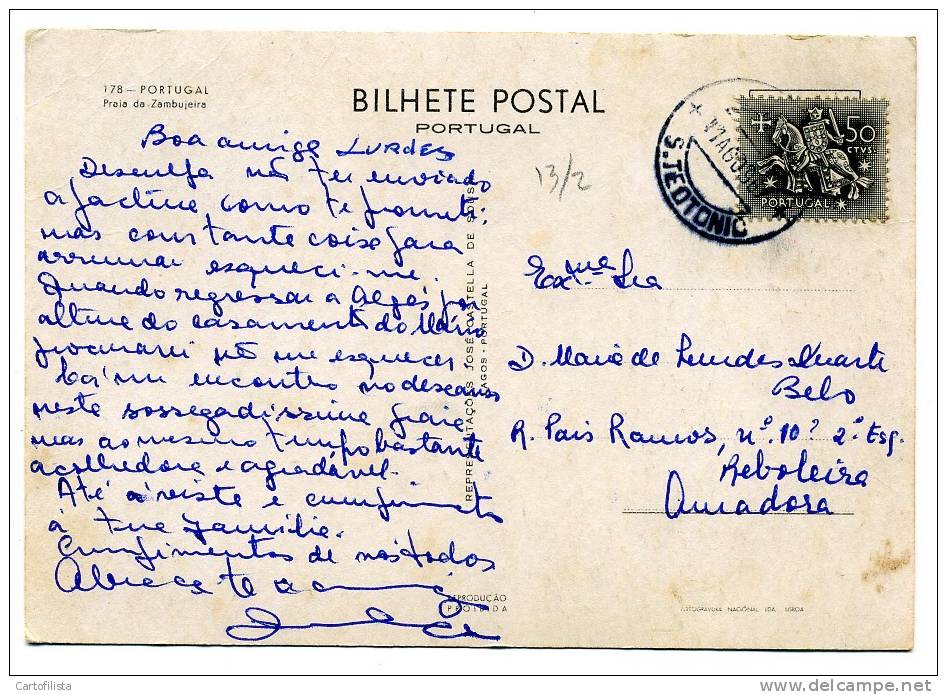 178 — PORTUGAL
Praia da Zambujeira
BILHETE POSTAL
PORTUGAL
Boa amiga Lurdes
Desculpa não ter enviado
a factura como te prometi;
mas com tante coisa para
arrumar esqueci-me.
Quando regressar a Algés, por
altura do casamento do Mário
procurarei não me esquecer.
Cá me encontro no descanso
neste sossegadissima praia
mas ao mesmo tempo bastante
acolhedora e agradável.
Até à vista e cumprimentos
à tua familia.
Cumprimentos de nós todos
Abraça-te a amiga
REPRESENTAÇÕES JOSÉ CASTELLA DE SOUSA
LAGOS - PORTUGAL
REPRODUÇÃO
PROIBIDA
13/2
S. TEOTONIO
50
CTVS.
PORTUGAL
Exma. Sra
D. Maria de Lourdes Duarte
Belo
R. Pais Ramos, nº. 10 2º Esq.
Reboleira
Amadora
FOTOGRAVURA NACIONAL LDA. LISBOA
Cartofilista
www.delcampe.net